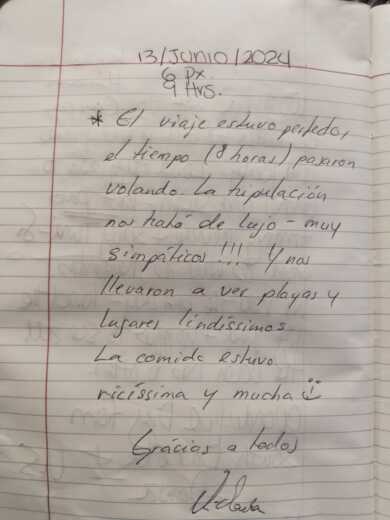 13/JUNIO/2024
6 Px.
9 Hrs.
* El viaje estuvo perfecto,
el tiempo (8 horas) pasaron
volando. La tripulación
nos trató de lujo - muy
simpáticos !!! Y nos
llevaron a ver playas y
lugares lindíssimos.
La comida estuvo
ricíssima y mucha
Grácias a todos